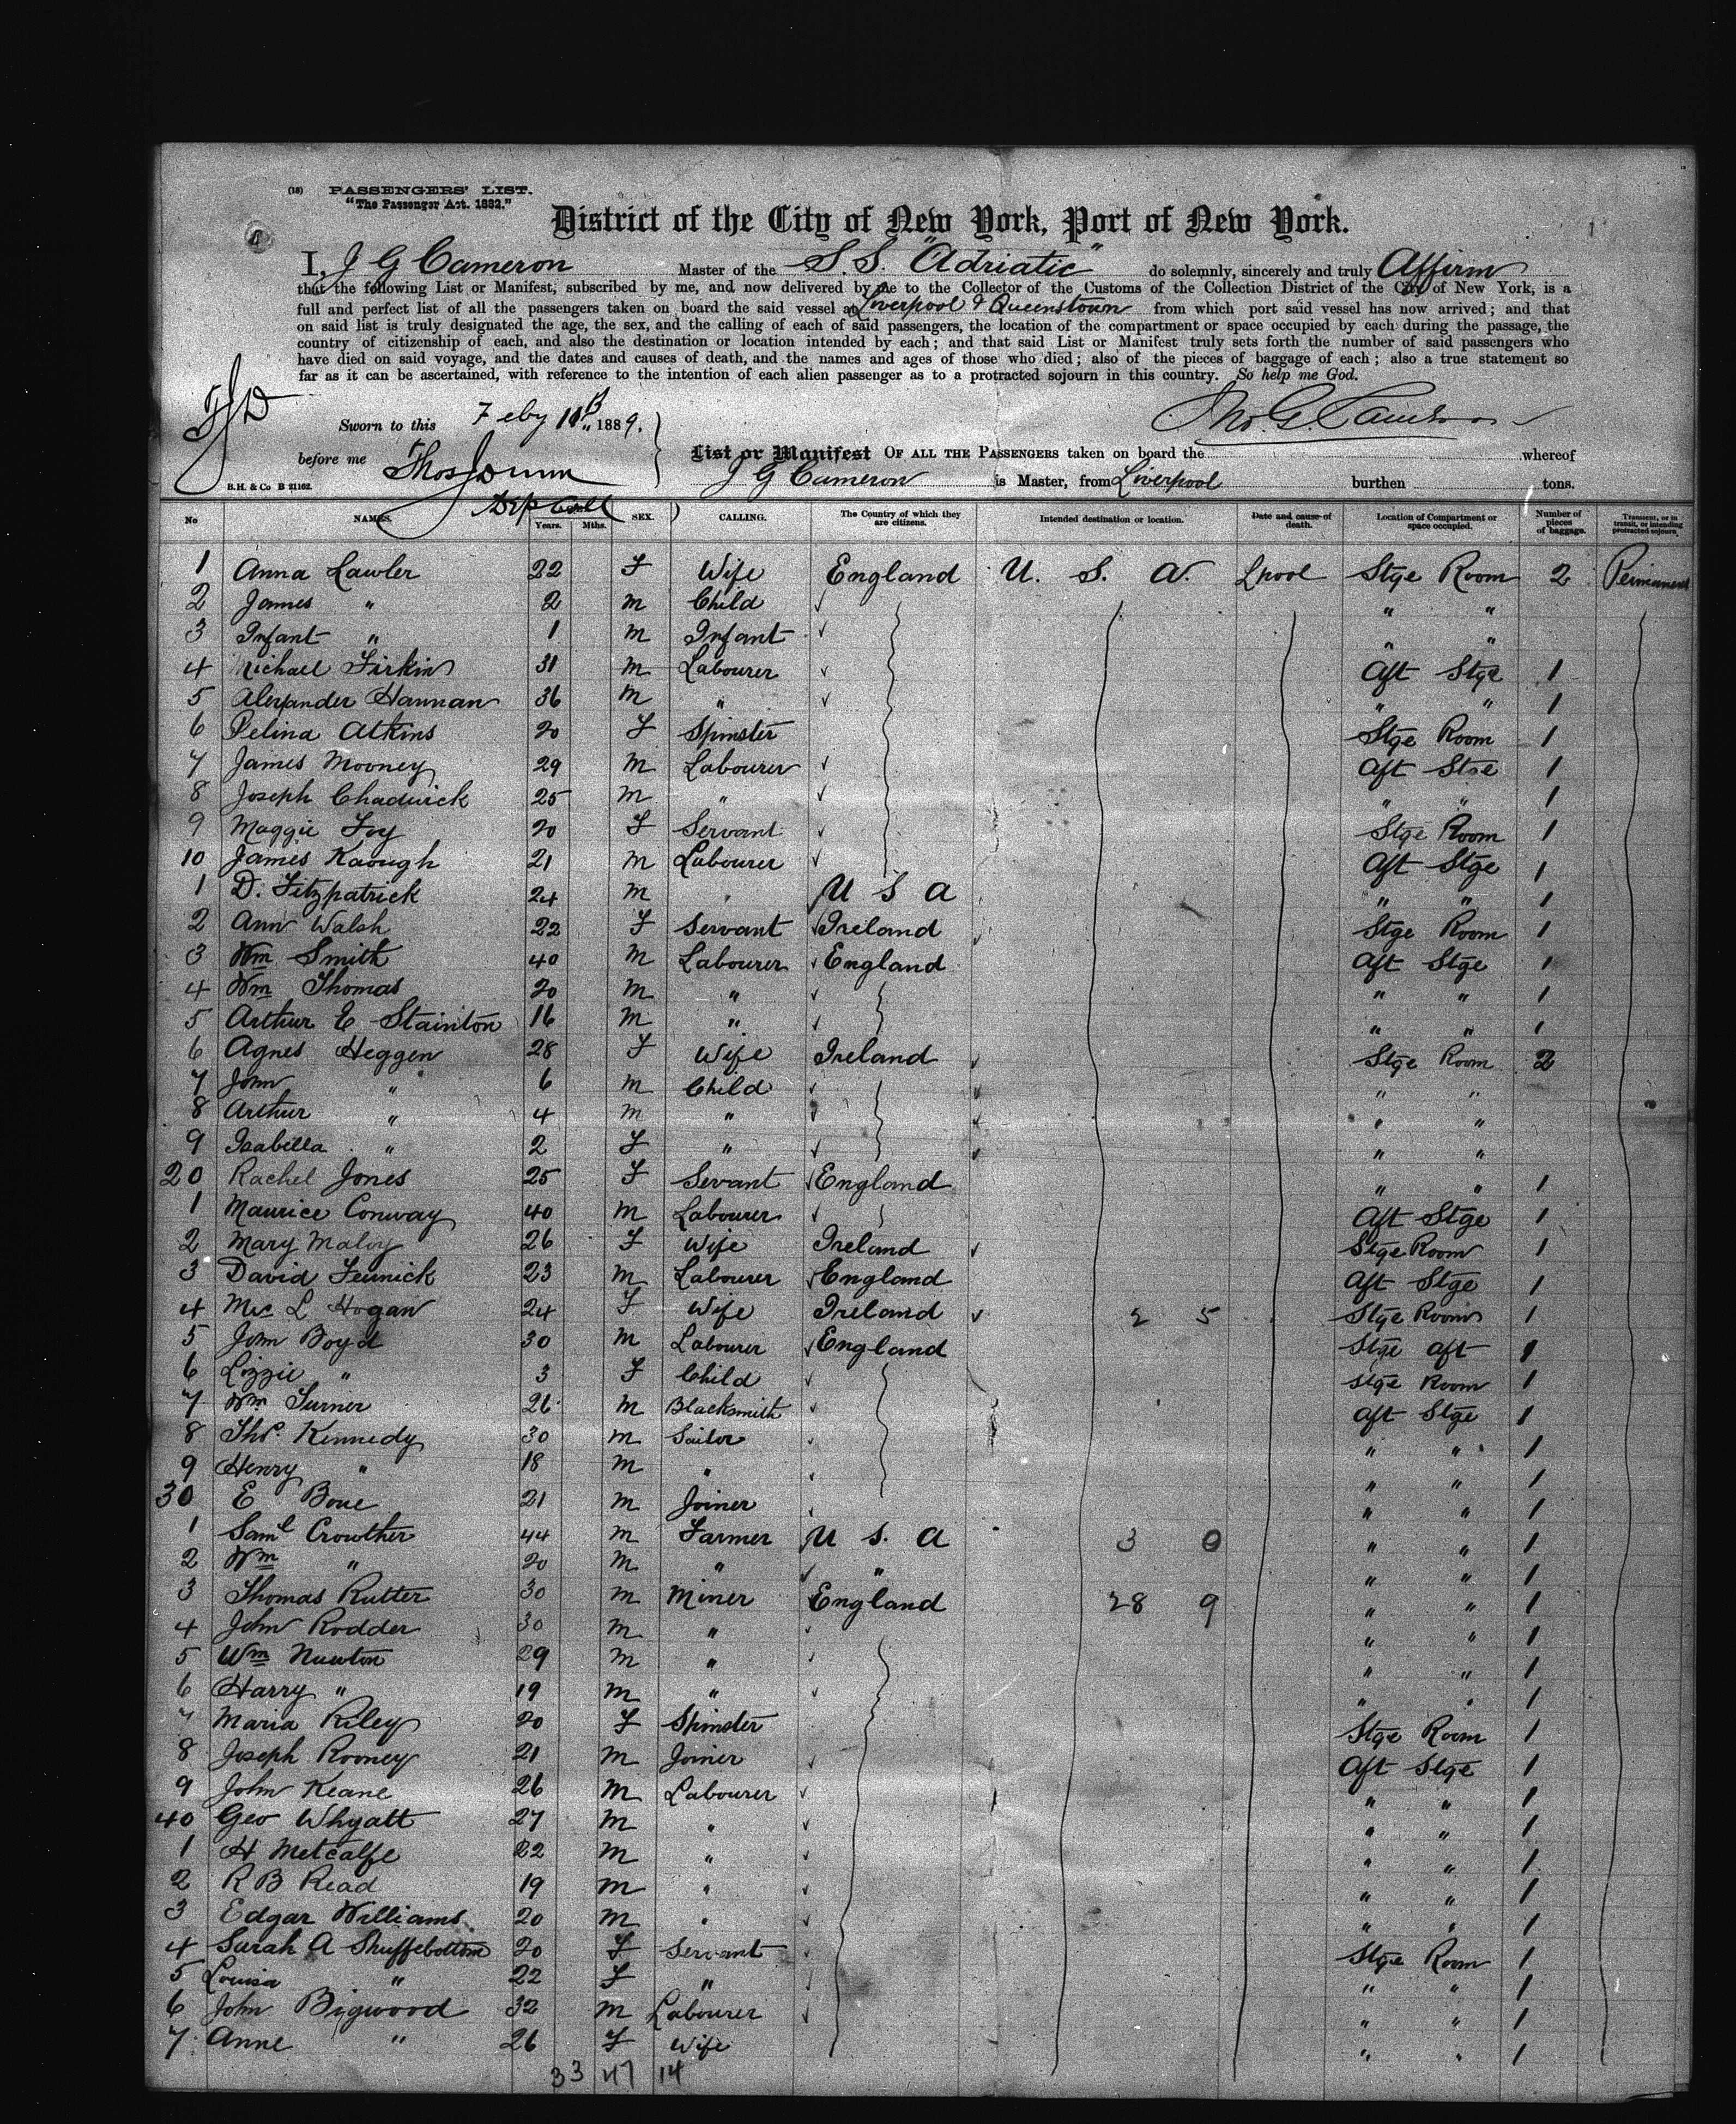 (18) PASSENGERS' LIST.
"The Passenger Act. 1882."
District of the City of New York, Port of New York.
I, J G Cameron Master of the S.S. "Adriatic" do solemnly, sincerely and truly Affirm
that the following List or Manifest, subscribed by me, and now delivered by me to the Collector of the Customs of the Collection District of the City of New York, is a
full and perfect list of all the passengers taken on board the said vessel at Liverpool & Queenstown from which port said vessel has now arrived; and that
on said list is truly designated the age, the sex, and the calling of each of said passengers, the location of the compartment or space occupied by each during the passage, the
country of citizenship of each, and also the destination or location intended by each; and that said List or Manifest truly sets forth the number of said passengers who
have died on said voyage, and the dates and causes of death, and the names and ages of those who died; also of the pieces of baggage of each; also a true statement so
far as it can be ascertained, with reference to the intention of each alien passenger as to a protracted sojourn in this country. So help me God.
Sworn to this Feby 1889.
before me Thos Dunn
Dep Coll
Jno. G Cameron
List or Manifest OF ALL THE PASSENGERS taken on board the whereof
J G Cameron is Master, from Liverpool burthen tons.
B.H. & Co B 21162.
No NAMES. Years. Mths. SEX. CALLING. The Country of which they are citizens. Intended destination or location. Date and cause of death. Location of Compartment or space occupied. Number of pieces of baggage. Transient, or in transit, or intending protracted sojourn.
1 Anna Lawler 22 F Wife England U. S. A. Lpool Stge Room 2 Permanent
2 James " 2 M Child " "
3 Infant " 1 M Infant " "
4 Michael Firkin 31 M Labourer Aft Stge 1
5 Alexander Hannan 36 M " " " 1
6 Pelina Atkins 20 F Spinster Stge Room 1
7 James Mooney 29 M Labourer Aft Stge 1
8 Joseph Chadwick 25 M " " " 1
9 Maggie Foy 20 F Servant Stge Room 1
10 James Kaough 21 M Labourer Aft Stge 1
1 D. Fitzpatrick 24 M " U S A " " 1
2 Ann Walsh 22 F Servant Ireland Stge Room 1
3 Wm Smith 40 M Labourer England Aft Stge 1
4 Wm Thomas 20 M " " " 1
5 Arthur E Stainton 16 M " " " 1
6 Agnes Heggen 28 F Wife Ireland Stge Room 2
7 John " 6 M Child " "
8 Arthur " 4 M " " "
9 Isabella " 2 F " " "
20 Rachel Jones 25 F Servant England " " 1
1 Maurice Conway 40 M Labourer Aft Stge 1
2 Mary Maloy 26 F Wife Ireland Stge Room 1
3 David Fennick 23 M Labourer England Aft Stge 1
4 Mrs L Hogan 24 F Wife Ireland 2 5 Stge Room 1
5 John Boyd 30 M Labourer England Stge Aft 1
6 Lizzie " 3 F Child Stge Room 1
7 Wm Turner 26 M Blacksmith Aft Stge 1
8 Thos Kennedy 30 M Sailor " " 1
9 Henry " 18 M " " " 1
30 E Boue 21 M Joiner " " 1
1 Saml Crowther 44 M Farmer U S. A 3 0 " " 1
2 Wm " 20 M " " " " 1
3 Thomas Rutter 30 M Miner England 28 9 " " 1
4 John Rodder 30 M " " " 1
5 Wm Newton 29 M " " " 1
6 Harry " 19 M " " " 1
7 Maria Riley 20 F Spinster Stge Room 1
8 Joseph Rooney 21 M Joiner Aft Stge 1
9 John Keane 26 M Labourer " " 1
40 Geo Whyatt 27 M " " " 1
1 H Metcalfe 22 M " " " 1
2 R B Read 19 M " " " 1
3 Edgar Williams 20 M " " " 1
4 Sarah A Shuffebottom 20 F Servant Stge Room 1
5 Louisa " 22 F " " " 1
6 John Bigwood 32 M Labourer " " 1
7 Anne " 26 F Wife " " 1
33 47 14